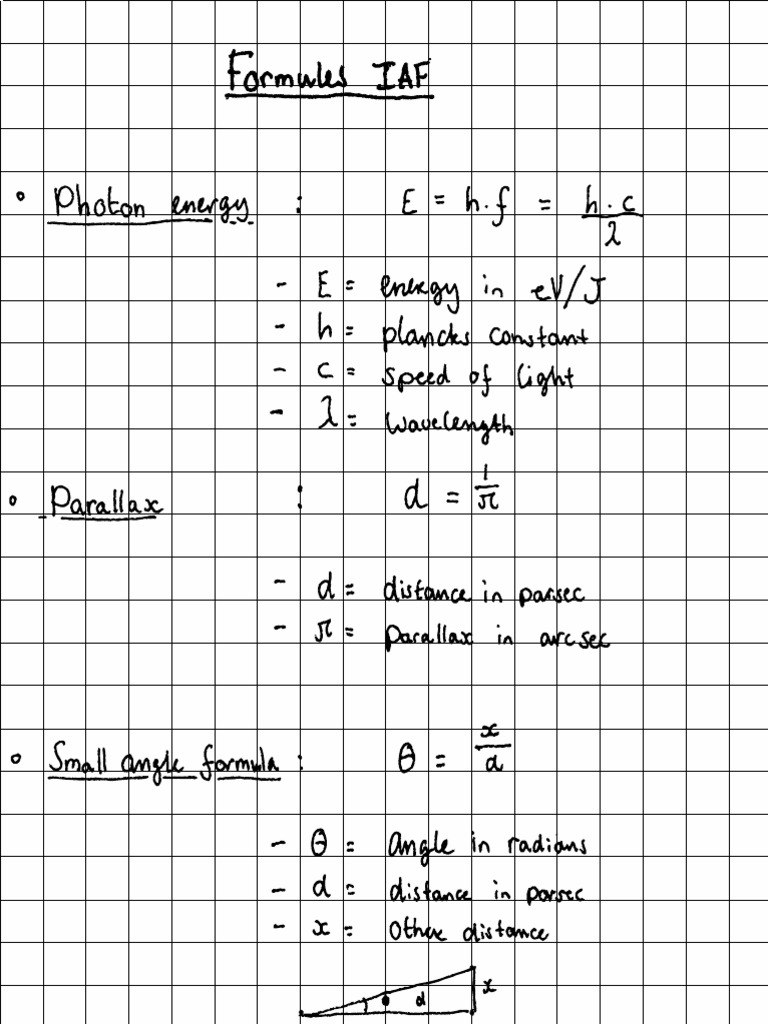 Formules IAF
• Photon energy : E = h.f = h.c/λ
- E = energy in eV/J
- h = plancks constant
- c = speed of light
- λ = wavelength
• Parallax : d = 1/π
- d = distance in parsec
- π = parallax in arcsec
• Small angle formula : θ = x/d
- θ = angle in radians
- d = distance in parsec
- x = other distance
θ d x